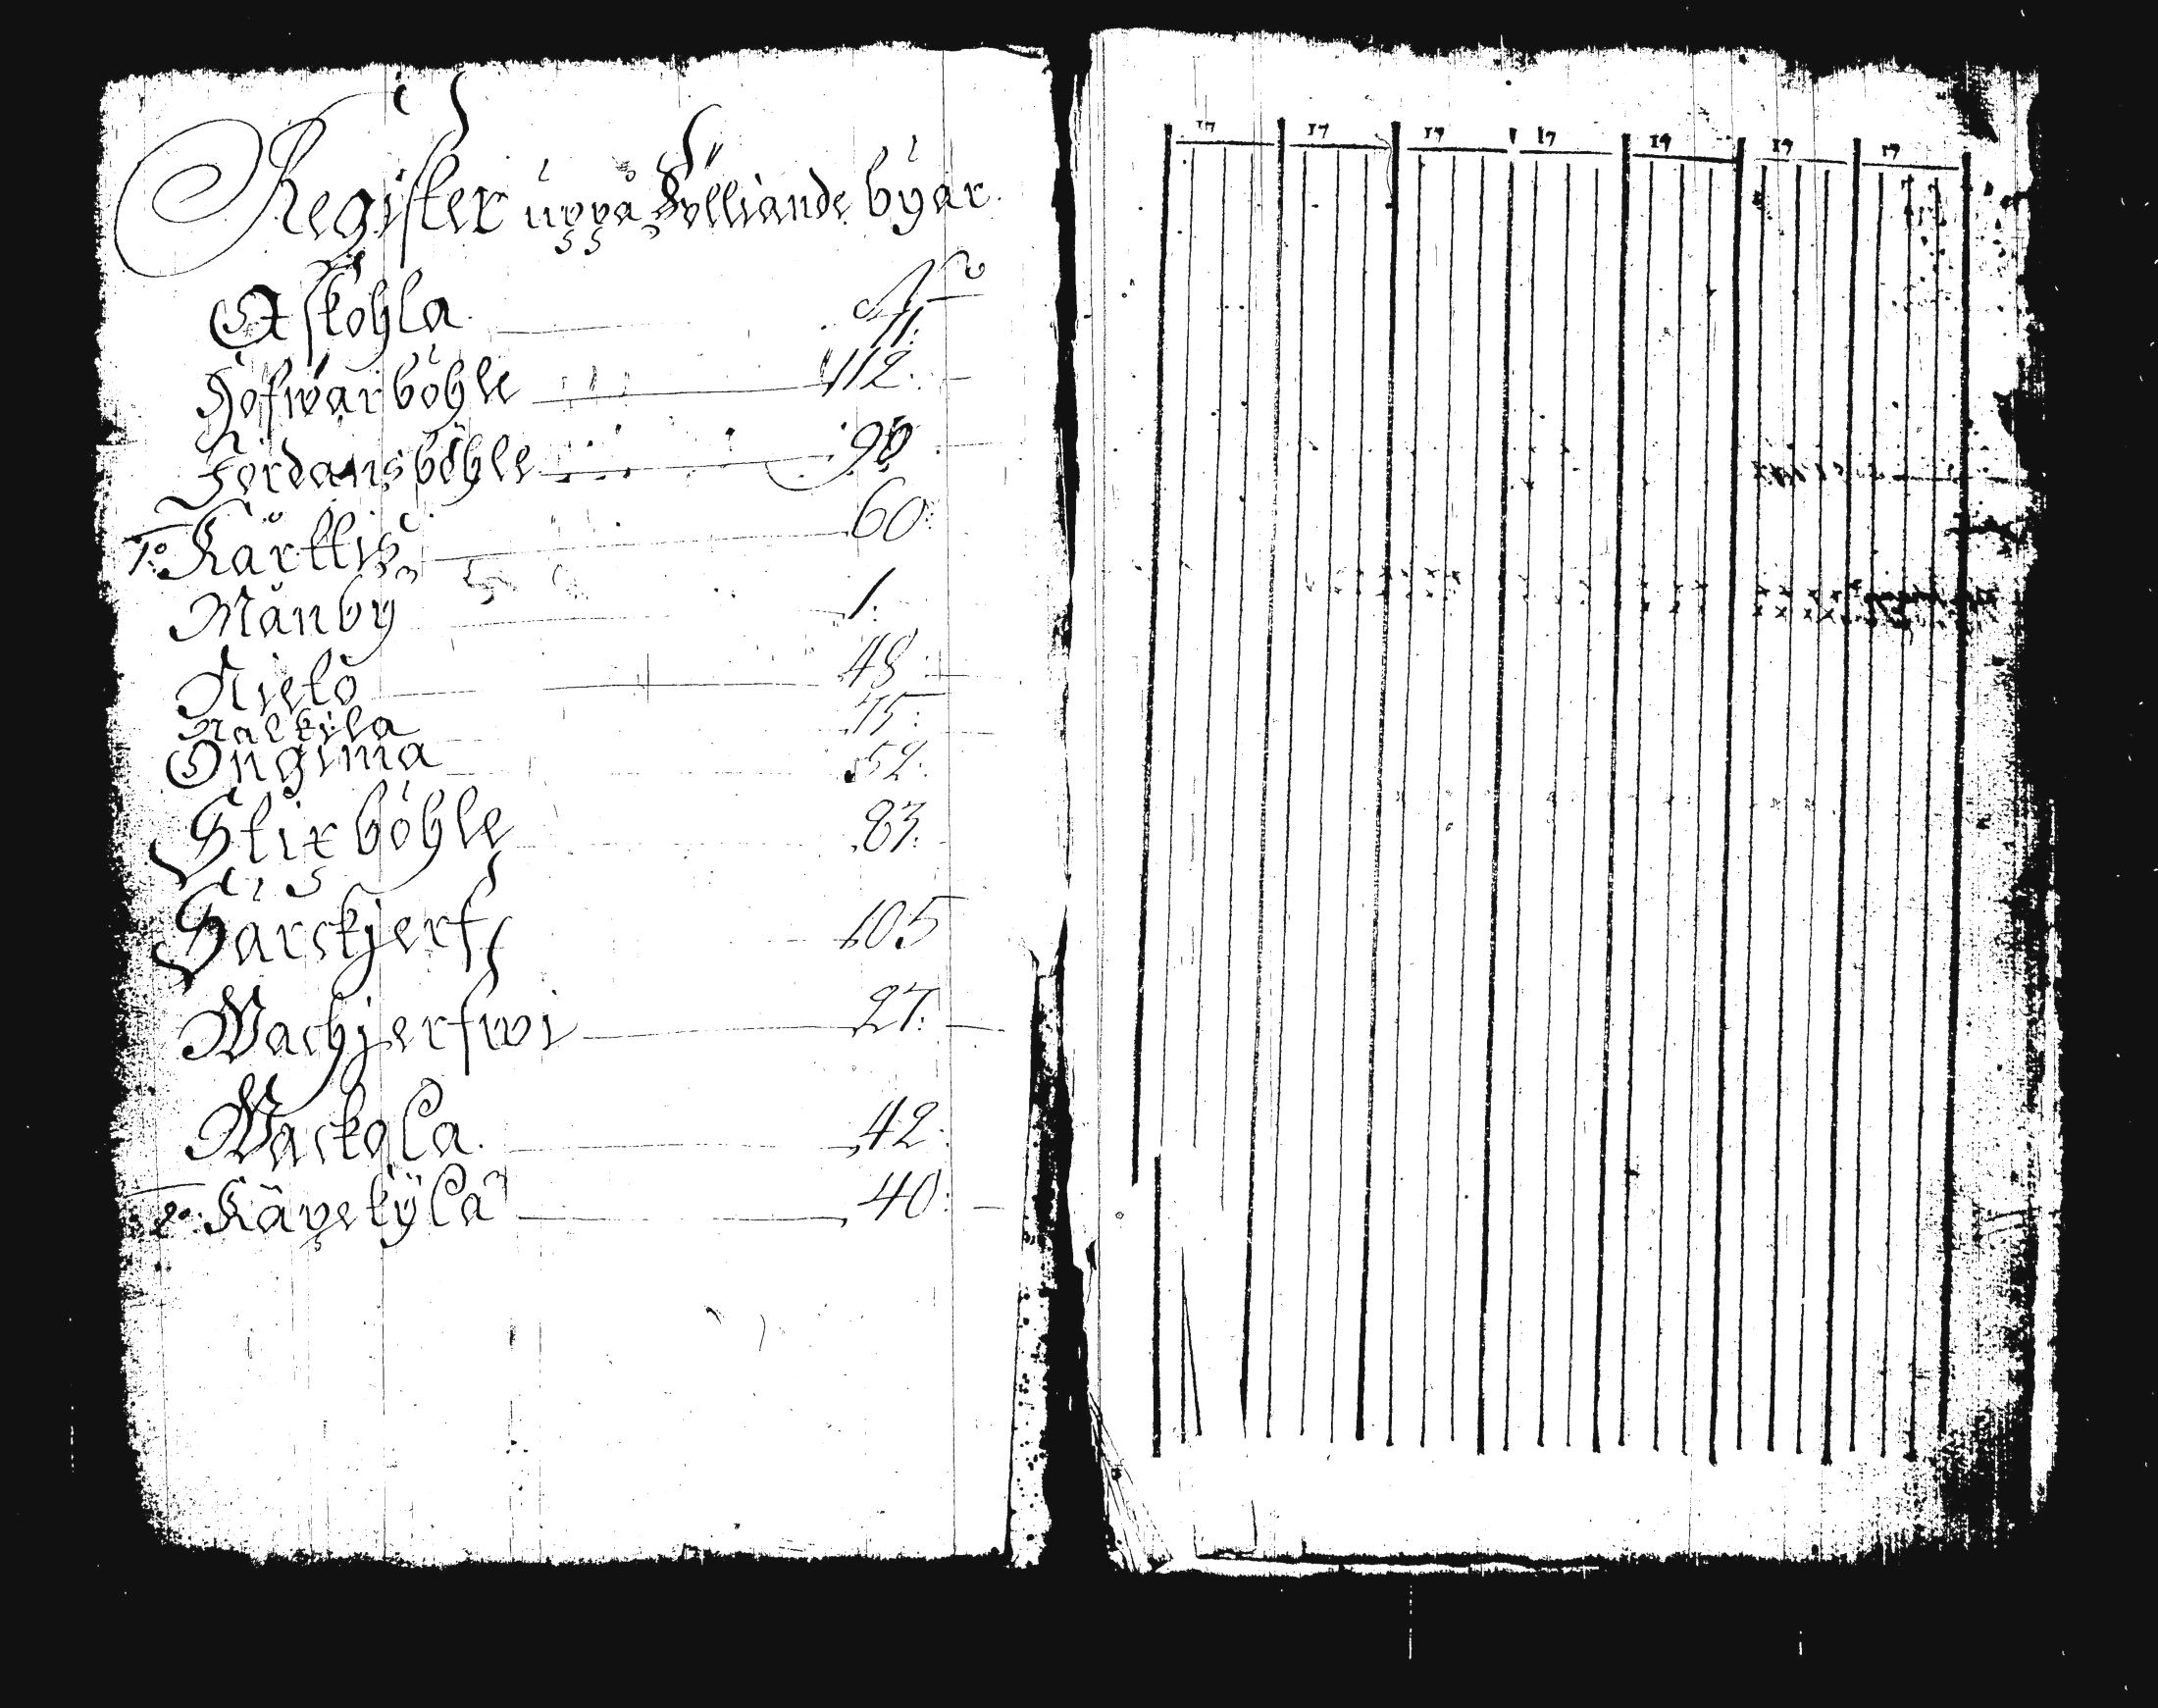 Register uppå Fölliande byar.
No
Asköhla 11.
Hofwarböhle 112.
Jordansböhle 90
1:o Kärttis 60:
Månby 1.
Nietö 48:
Nalkila 75:
Ongima 52:
Stixböhle 83.
Särckjerf 105
Wachjerfwi 27.
Wackola. 42:
2:o Käpekÿlä 40:
17 17 17 17 17 17 17